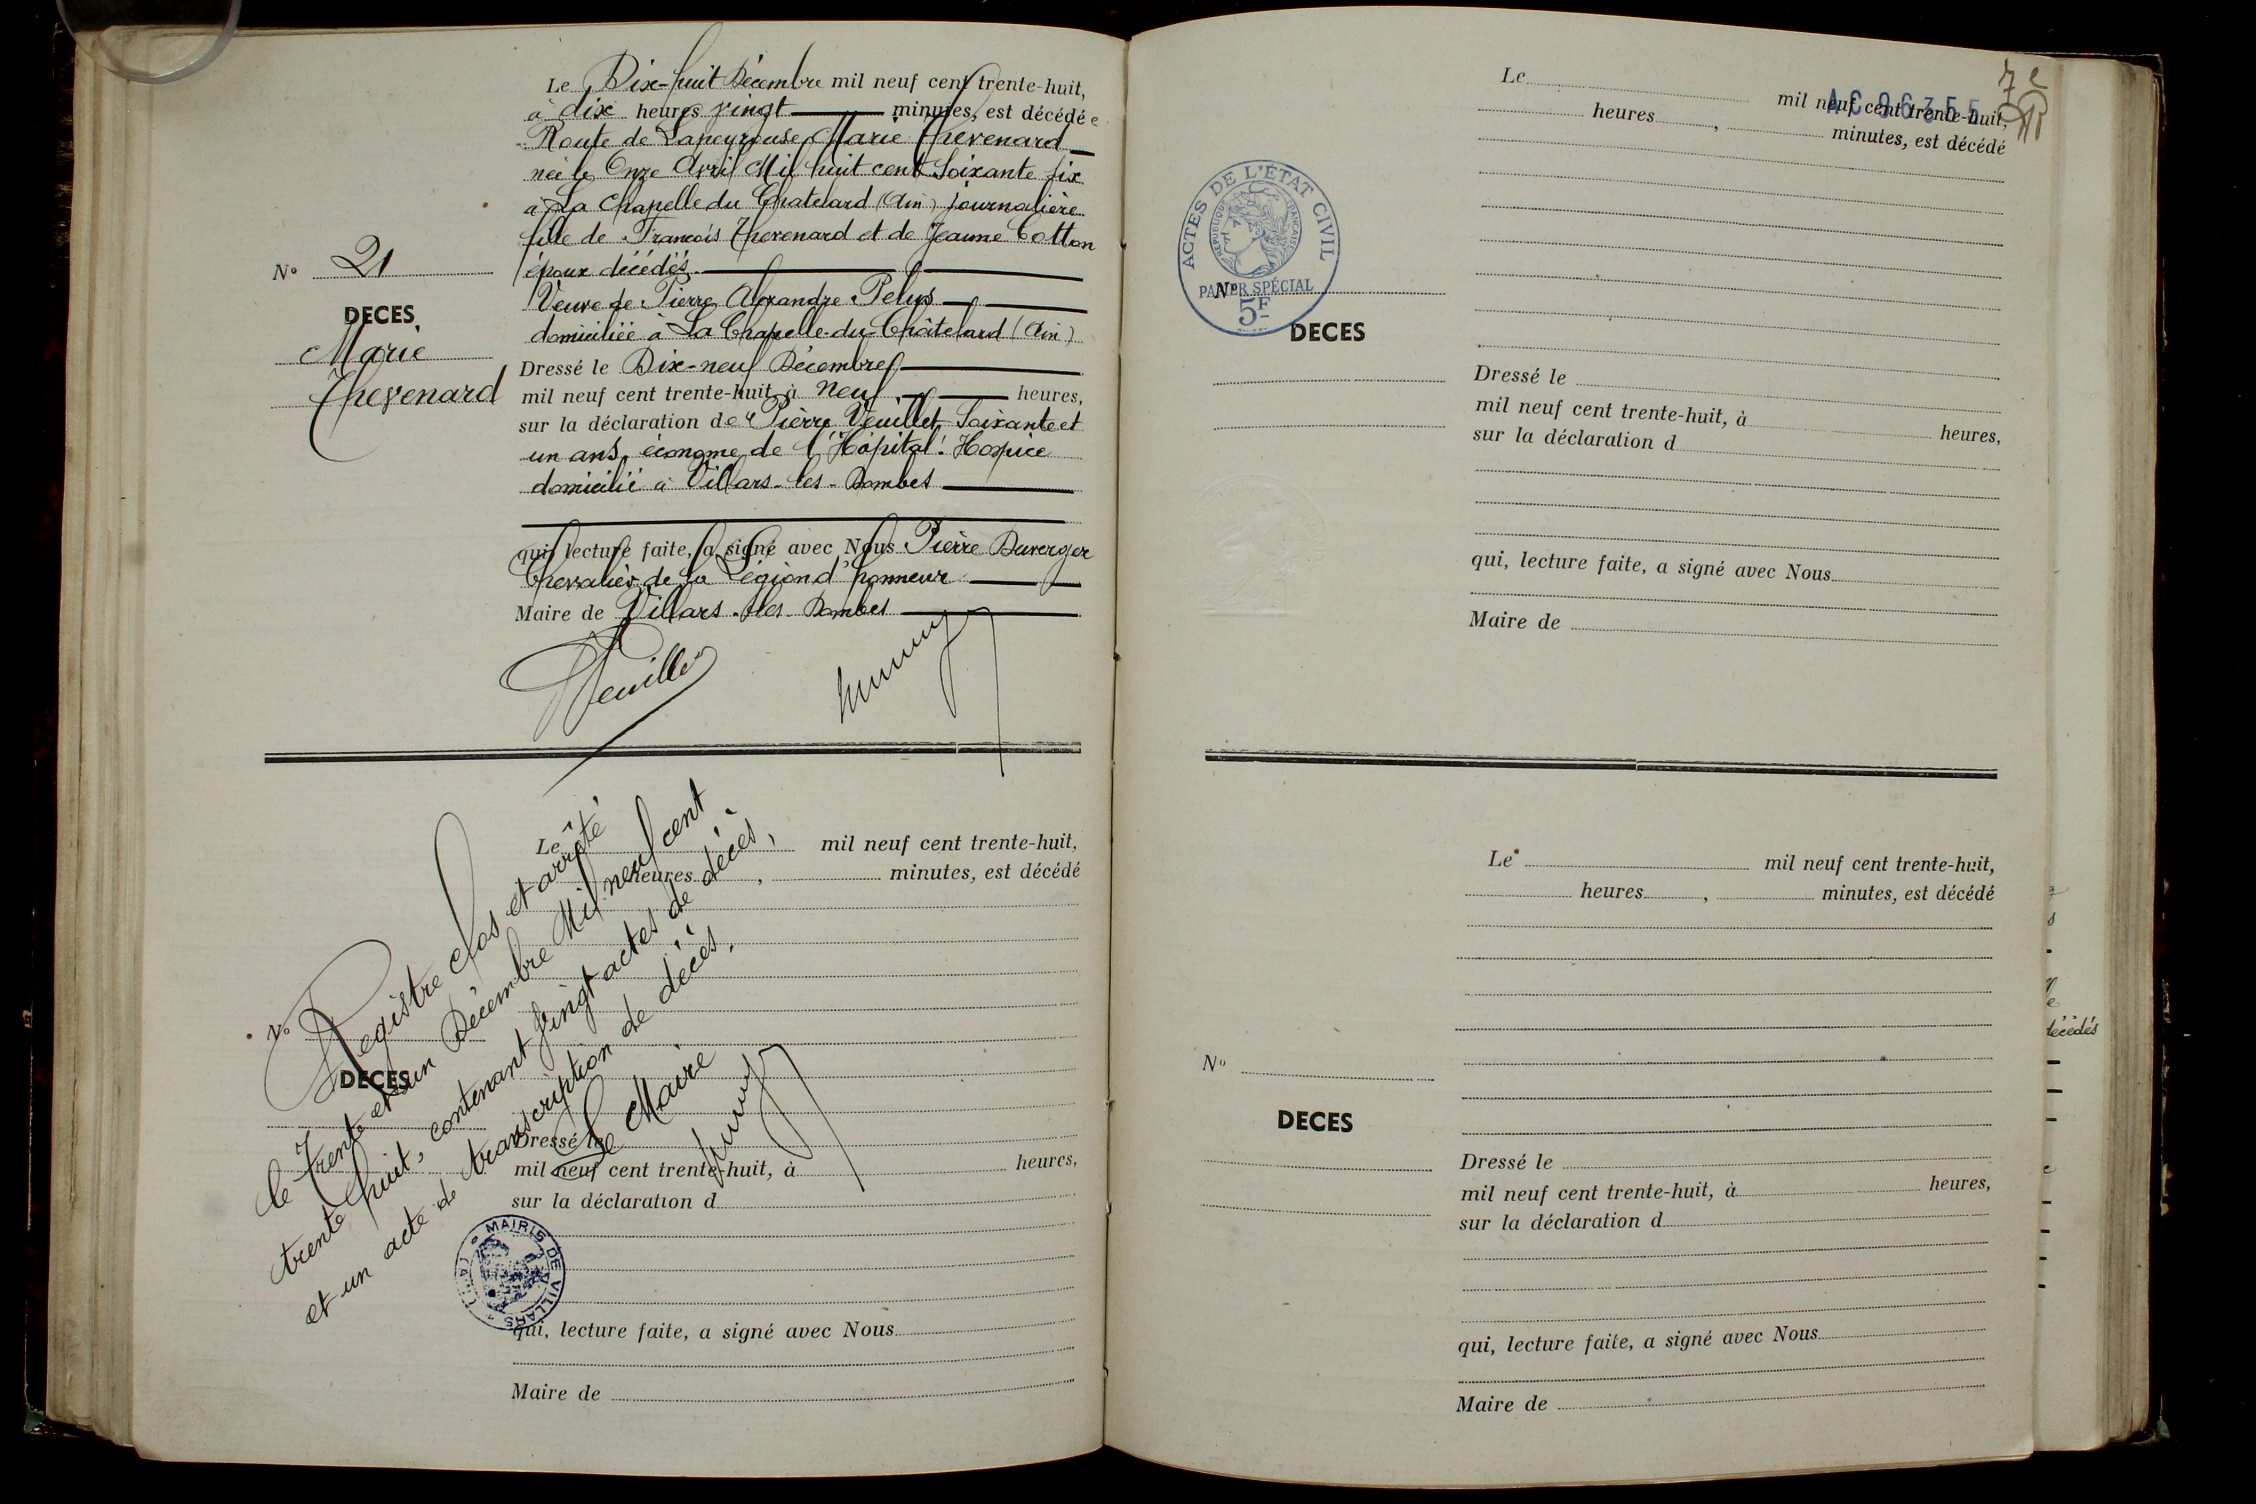 Le Dix-huit Décembre mil neuf cent trente-huit,
à dix heures vingt minutes, est décédée
Route de Lapeyrouse, Marie Thevenard
née le Onze Avril Mil huit cent soixante six
a La Chapelle du Chatelard (Ain) journalière
fille de François Thevenard et de Jeanne Cotton
époux décédés.
Veuve de Pierre Alexandre Pelus
domiciliée à La Chapelle-du-Châtelard (Ain)
Nº 21
DECES
Marie
Thevenard
Dressé le Dix-neuf Décembre
mil neuf cent trente-huit, à neuf heures,
sur la déclaration de Pierre Veuillet Soixante et
un ans, économe de l'Hôpital-Hospice
domicilié à Villars-les-Dombes
qui, lecture faite, a signé avec Nous Pierre Duverger
Chevalier de la Légion d'honneur
Maire de Villars-les-Dombes
Veuillet
Le mil neuf cent trente-huit,
heures , minutes, est décédé
Nº
DECES
Dressé le
mil neuf cent trente-huit, à heures,
sur la déclaration d
qui, lecture faite, a signé avec Nous
Maire de
Registre clos et arrêté
le Trente et un Décembre Mil neuf cent
trente huit, contenant vingt actes de décès,
et un acte de transcription de décès.
Le Maire
MAIRIE DE VILLARS (AIN)
7e
AC 96355
Le mil neuf cent trente-huit,
heures , minutes, est décédé
ACTES DE L'ETAT CIVIL
REPUBLIQUE FRANÇAISE
PAPIER SPÉCIAL
5F
Nº
DECES
Dressé le
mil neuf cent trente-huit, à heures,
sur la déclaration d
qui, lecture faite, a signé avec Nous
Maire de
Le mil neuf cent trente-huit,
heures , minutes, est décédé
décédés
Nº
DECES
Dressé le
mil neuf cent trente-huit, à heures,
sur la déclaration d
qui, lecture faite, a signé avec Nous
Maire de